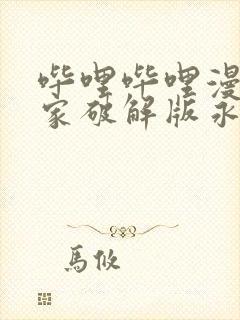 哔哩哔哩漫
家破解版永
馬攸